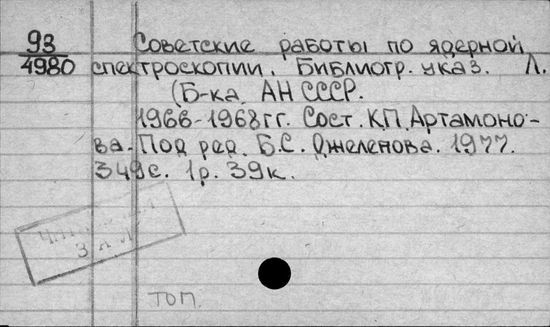 93
4980
Советские работы по ядерной
спектроскопии. Библиогр. указ. Л.
(Б-ка АН СССР.
1966-1968гг. Сост. К.П. Артамоно-
ва. Под ред. Б.С. Джелепова. 1977.
349с. 1р. 39к.
ЧИТАЛЬНЫЙ
ЗАЛ
ТОП.